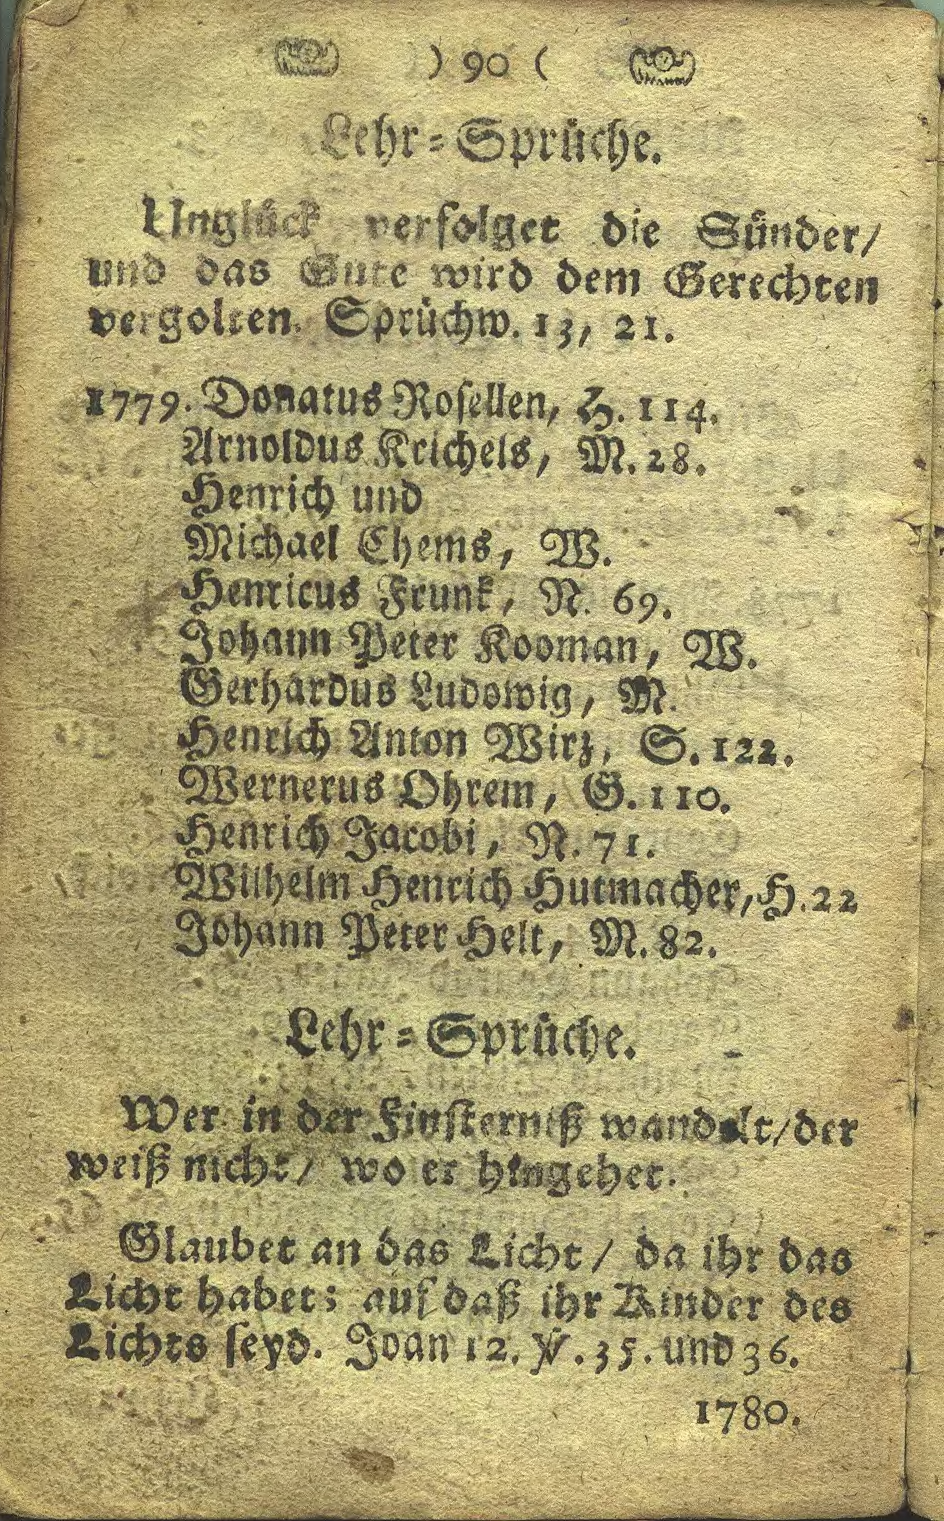 ) 90 (
Lehr-Sprüche.
Unglück verfolget die Sünder/
und das Gute wird dem Gerechten
vergolten. Sprüchw. 13, 21.
1779. Donatus Rosellen, H. 114.
Arnoldus Krichels, M. 28.
Henrich und
Michael Chems, W.
Henricus Frunk, N. 69.
Johann Peter Kooman, W.
Gerhardus Ludowig, M.
Henrich Anton Wirz, S. 122.
Wernerus Ohrem, G. 110.
Henrich Jacobi, N. 71.
Wilhelm Henrich Hutmacher, H. 22
Johann Peter Helt, M. 82.
Lehr-Sprüche.
Wer in der Finsterniß wandelt/der
weiß nicht/ wo er hingehet.
Glaubet an das Licht/ da ihr das
Licht habet; auf daß ihr Kinder des
Lichts seyd. Joan 12. ℣. 35. und 36.
1780.